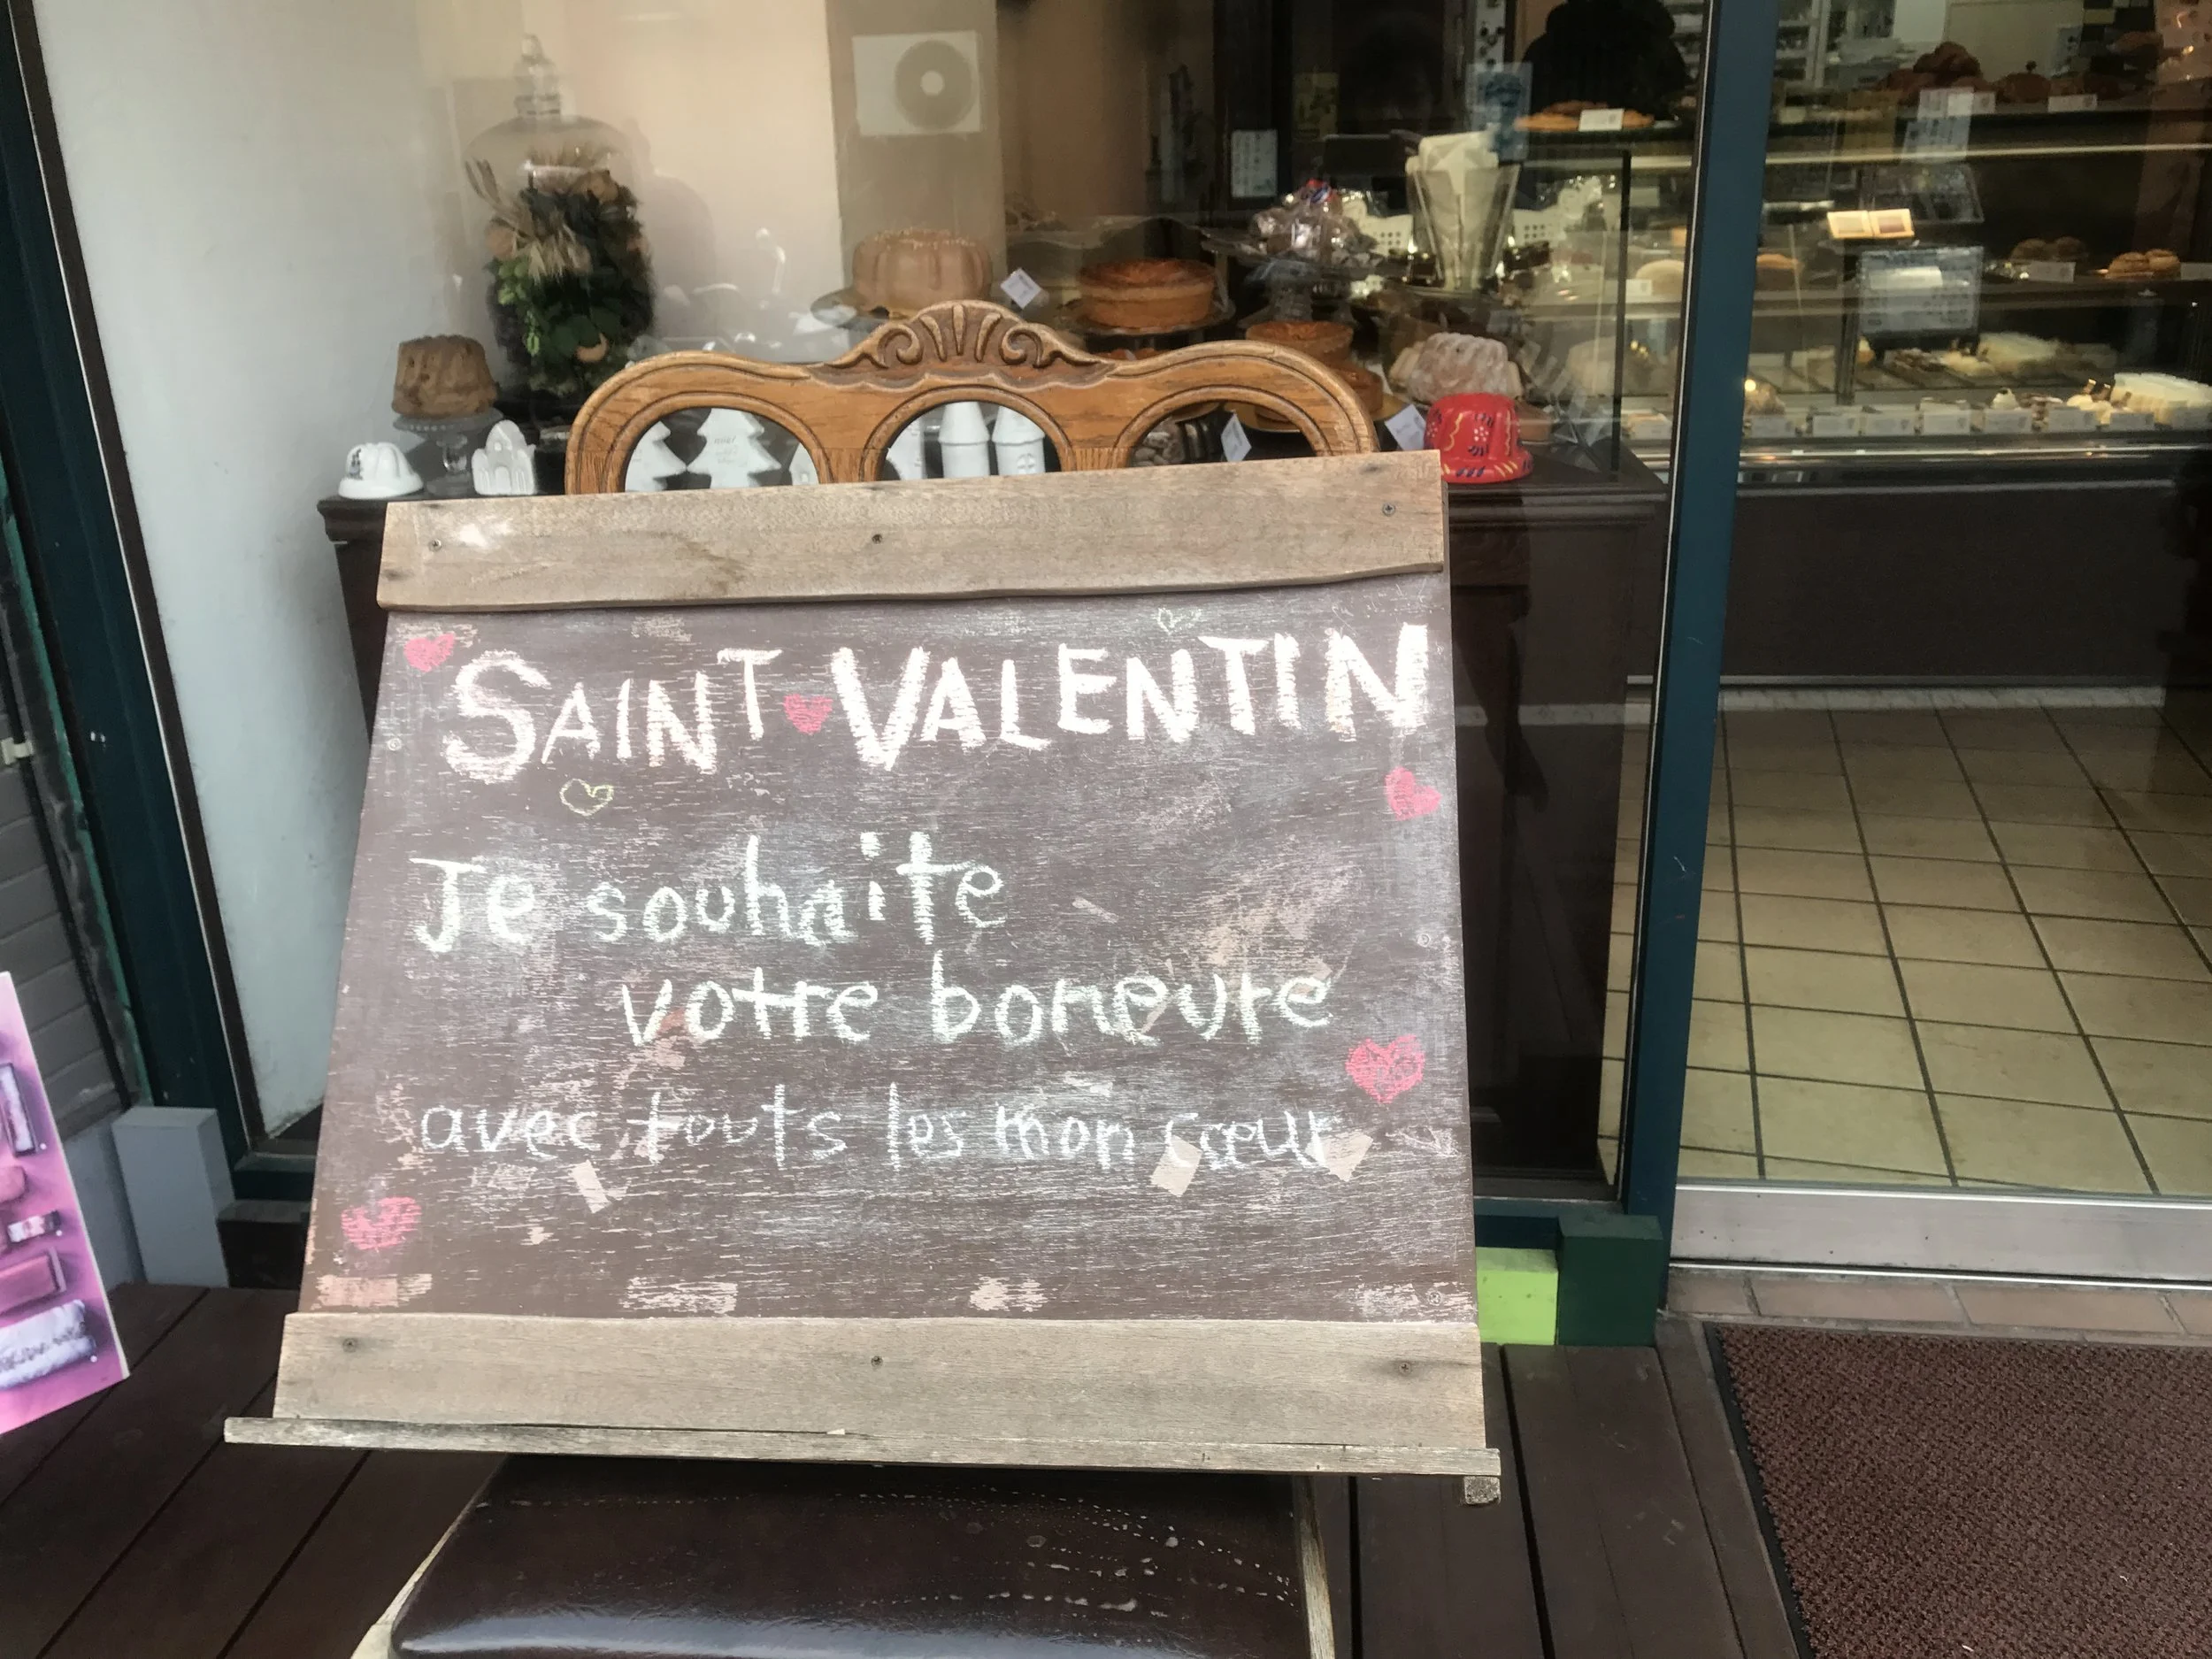 SAINT VALENTIN
Je souhaite
votre boneure
avec touts les mon cœur